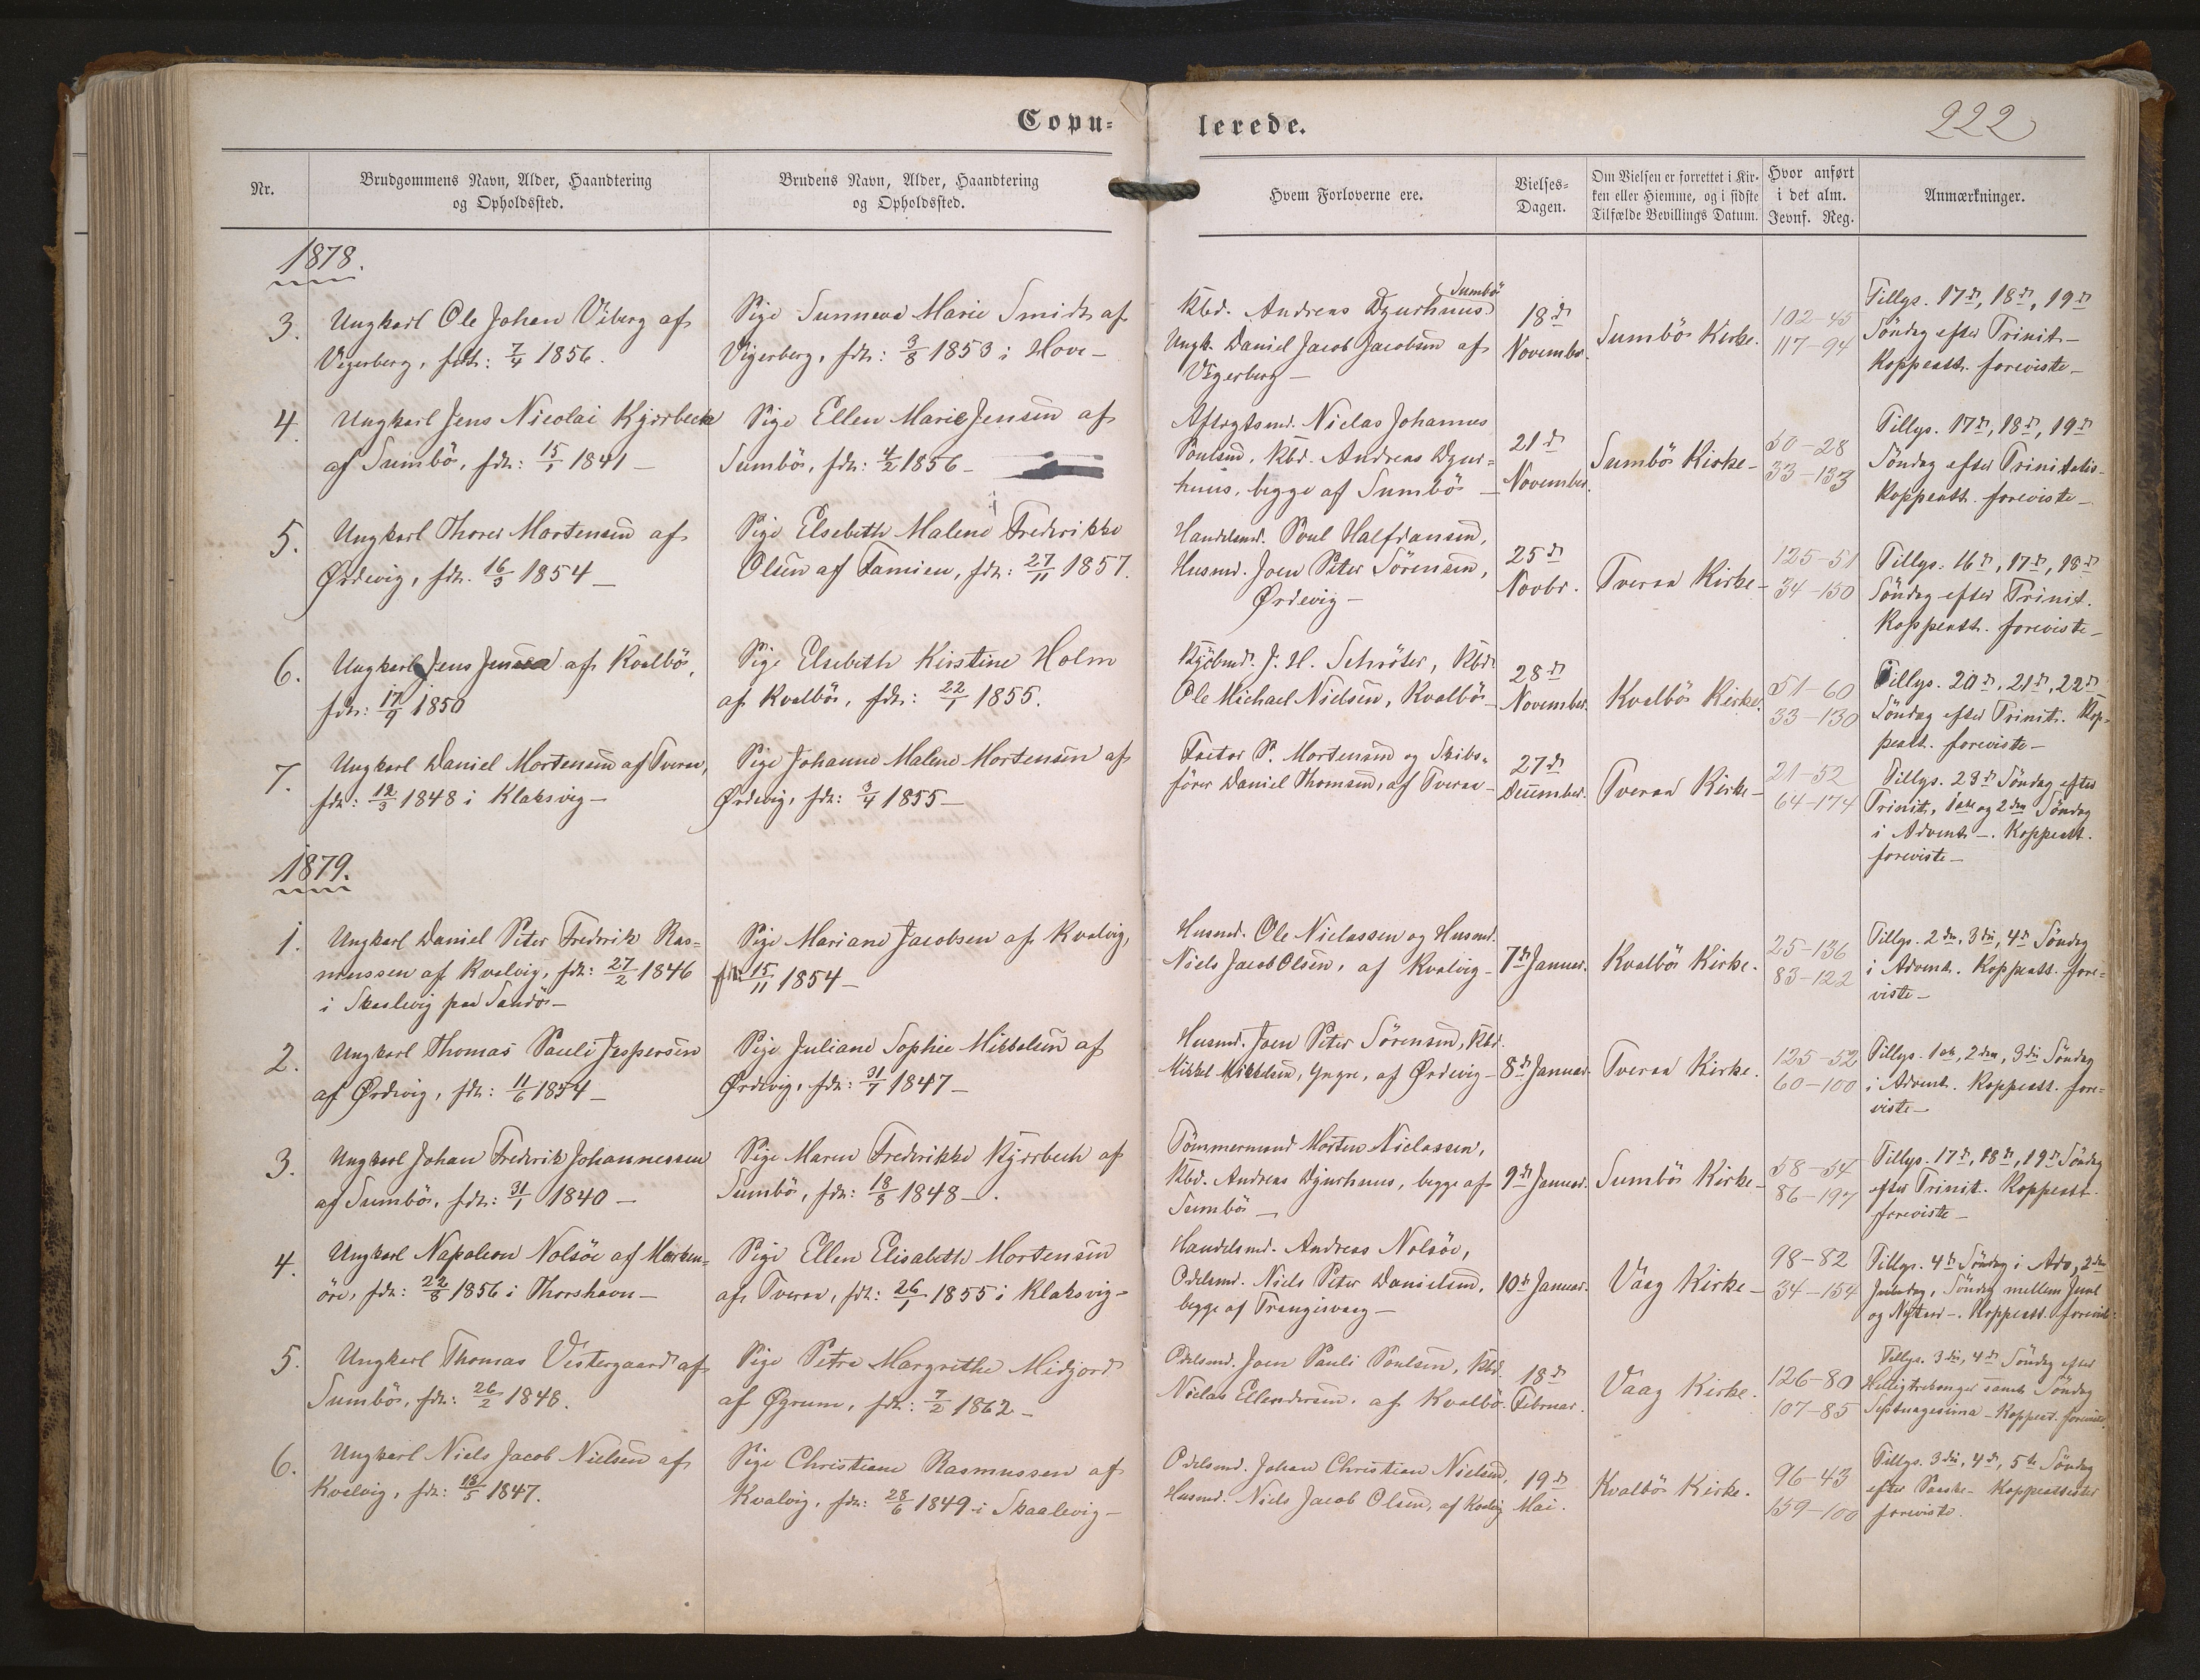 Copu= lerede.
222
Nr.
Brudgommens Navn, Alder, Haandtering
og Opholdssted.
Brudens Navn, Alder, Haandtering
og Opholdssted.
Hvem Forloverne ere.
Vielses-
Dagen.
Om Vielsen er forrettet i Kir-
ken eller Hiemme, og i sidste
Tilfælde Bevillings Datum.
Hvor anført
i det alm.
Jevnf. Reg.
Anmærkninger.
1878.
3.
Ungkarl Ole Johan Viberg af
Vigerberg, fdt: 7/4 1856.
Pige Sunneva Marie Smidt af
Vigerberg, fdt: 3/8 1853 i Hove-
Kbd. Andreas Dyurhuus Sumbö
Ungk. Daniel Jacob Jacobsen af
Vigerberg –
18de
Novembr.
Sumbös Kirke.
102-45
117-94
Tillys. 17de, 18de, 19de
Söndag efter Trinit-
Koppeatt. foreviste-
4.
Ungkarl Jens Nicolai Kjærbeck
af Sumbö, fdt: 15/1 1841 –
Pige Ellen Marie Jensen af
Sumbö, fdt: 4/2 1856 –
Aftægtsmd. Niclas Johannes
Poulsen, Kbd. Andreas Dyur=
huus, begge af Sumbö –
21de
November.
Sumbös Kirke-
50-28
33-133
Tillys. 17de, 18de, 19de
Söndag efter Trinitatis-
Koppeatt. foreviste-
5.
Ungkarl Thorer Mortensen af
Ørdevig, fdt. 16/3 1854 –
Pige Elsebeth Malene Frederikke
Olsen af Famien, fdt: 27/11 1857.
Handelsmd. Poul Halfdansen,
Husmd. Joen Peter Sörensen,
Ørdevig –
25de
Novbr.
Tveraa Kirke-
125-51
34-150
Tillys. 16de, 17de, 18de
Söndag efter Trinit.
Koppeatt. foreviste-
6.
Ungkarl Jens Jensen af Kvalbö,
fdt: 17/9 1850
Pige Elsebeth Kirstine Holm
af Kvalbö, fdt: 22/1 1855.
Kjöbmd. J. H. Schröter, Kbd.
Ole Michael Nielsen, Kvalbö-
28de
November.
Kvalbös Kirke.
51-60
33-130
Tillys. 20de, 21de, 22de
Söndag efter Trinit. Kop-
peatt. foreviste-
7.
Ungkarl Daniel Mortensen af Tveraa,
fdt: 12/3 1848 i Klaksvig –
Pige Johanne Malene Mortensen af
Ørdevig, fdt: 3/4 1855 –
Factor P. Mortensen og Skibs-
förer Daniel Thomsen, af Tveraa-
27de
December.
Tveraa Kirke-
21-52
64-174
Tillys. 23de Söndag efter
Trinit, 1ste og 2den Söndag
i Advent -. Koppeatt.
foreviste-
1879.
1.
Ungkarl Daniel Peter Frederik Ras=
mussen af Kvalvig, fdt: 27/2 1846
i Skaalevig paa Sandö –
Pige Mariane Jacobsen af Kvalvig,
fdt: 15/11 1854 –
Husmd. Ole Niclassen og Husmd.
Niels Jacob Olsen, af Kvalvig-
7de Januar.
Kvalbös Kirke.
25-136
83-122
Tillys. 2den, 3die, 4de Söndag
i Advent. Koppeatt. fore-
viste-
2.
Ungkarl Thomas Pauli Jespersen
af Ørdevig, fdt: 11/6 1854 –
Pige Juliane Sophie Mikkelsen af
Ørdevig, fdt: 31/7 1847 –
Husmd. Joen Peter Sörensen, Kbd.
Mikkel Mikkelsen, Yngre, af Ørdevig-
8de Januar.
Tveraa Kirke.
125-52
60-100
Tillys. 1ste, 2den, 3die Söndag
i Advent. Koppeatt. fore-
viste-
3.
Ungkarl Johan Frederik Johannessen
af Sumbö, fdt: 31/1 1840 –
Pige Maren Frederikke Kjærbech af
Sumbö, fdt: 18/8 1848 –.
Tömmermand Morten Niclassen,
Kbd. Andreas Dyurhuus, begge af
Sumbö –
9de Januar.
Sumbös Kirke-
58-54
86-197
Tillys. 17de, 18de, 19de Söndag
efter Trinit. Koppeatt.
foreviste-
4.
Ungkarl Napoleon Nolsöe af Marken-
öre, fdt: 22/8 1856 i Thorshavn –
Pige Ellen Elisabeth Mortensen
af Tveraa, fdt: 26/1 1855 i Klaksvig-
Handelsmd. Andreas Nolsöe,
Odelsmd. Niels Peter Danielsen,
begge af Trangisvaag –
10de Januar.
Vaag Kirke-
98-82
34-154
Tillys. 4de Söndag i Adv, 2den
Juledag, Söndag mellem Juul
og Nytaar -. Koppeatt. foreviste
5.
Ungkarl Thomas Vestergaard af
Sumbö, fdt: 26/2 1848.
Pige Petra Margrethe Midjord
af Øgrum, fdt: 7/2 1862 –
Odelsmd. Joen Pauli Poulsen, Kbd.
Niclas Ellendersen, af Kvalbö.
18de
Februar.
Vaag Kirke.
126-80
107-85
Tillys. 3die, 4de Söndag efter
Helligtrekonger samt Söndag
Septuagesima - Koppeat. foreviste
6.
Ungkarl Niels Jacob Nielsen af
Kvalvig, fdt: 13/5 1847.
Pige Christiane Rasmussen af
Kvalvig, fdt: 28/6 1849 i Skaalevig –
Odelsmd. Johan Christian Nielsen,
Husmd. Niels Jacob Olsen, af Kvalvig
19de
Mai.
Kvalbös Kirke.
96-43
159-100
Tillys. 3die, 4de, 5te Söndag
efter Paaske- Koppeattester
foreviste.